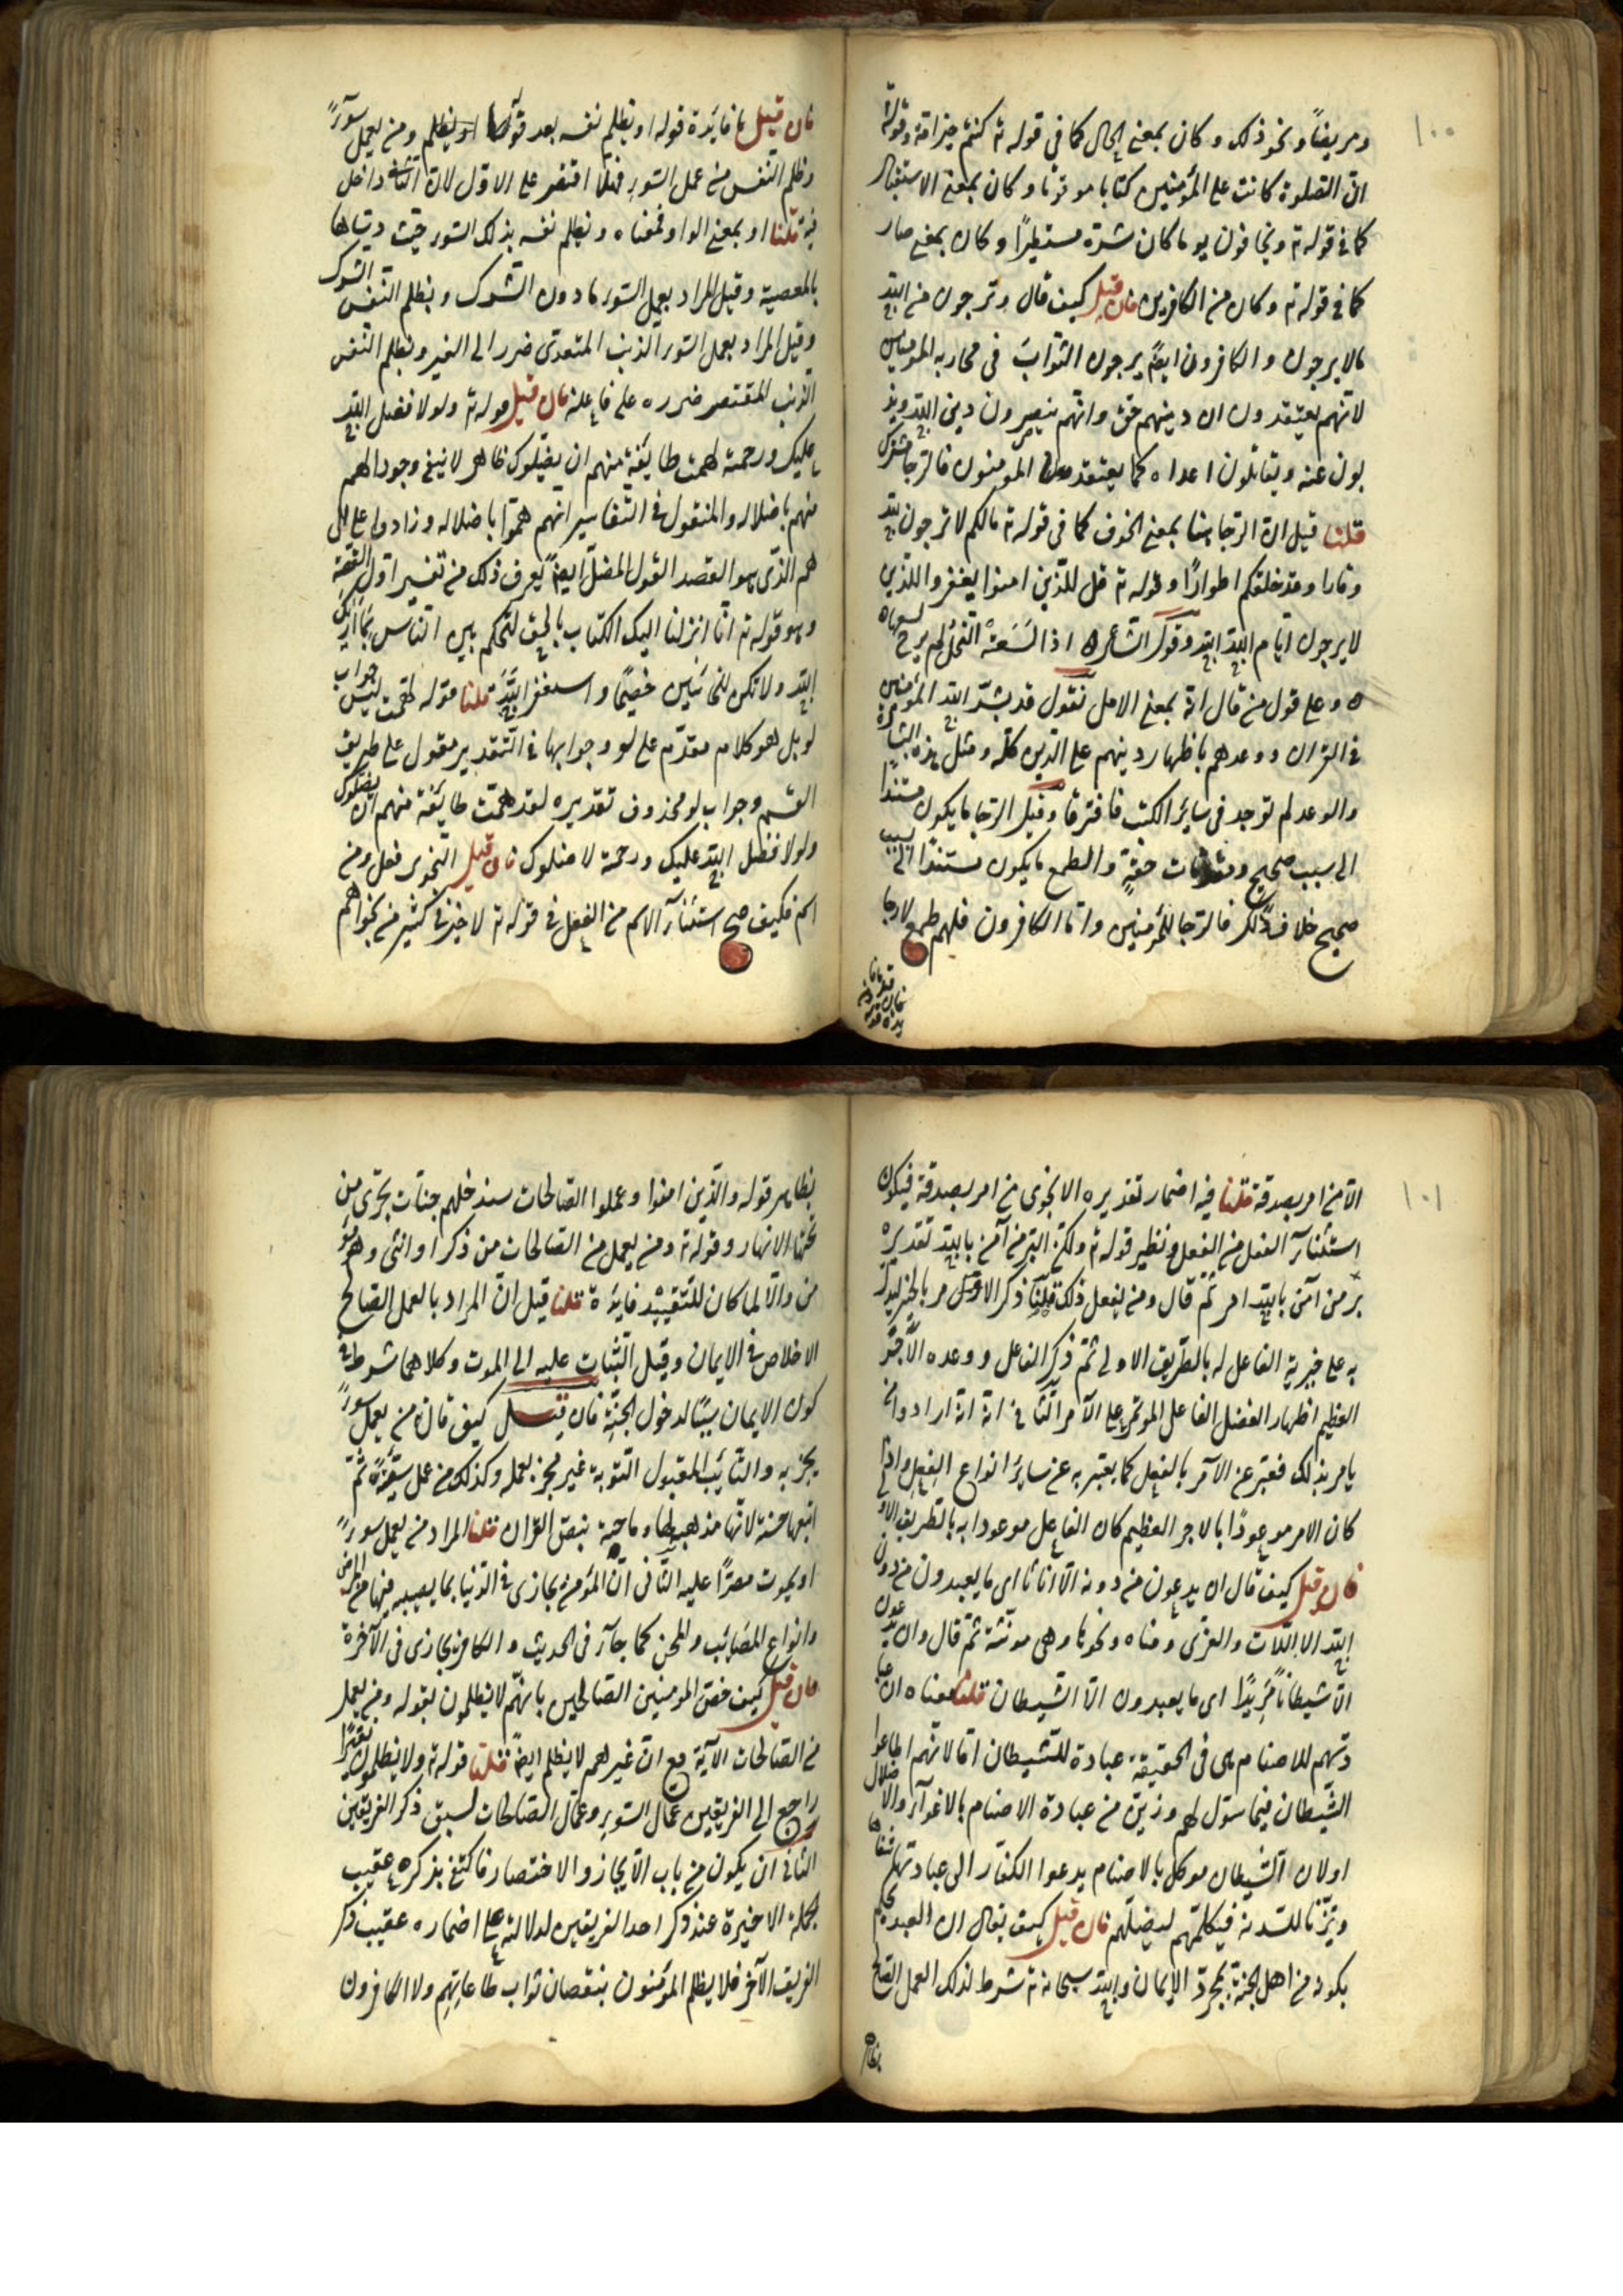 ١٠٠
ومريضاً ونحو ذلك وكان بمعنى الحال كما في قوله تع كنتم خير امة وقوله
انّ الصلوة كانت على المؤمنين كتابا موقوتا وكان بمعنى الاستقبال
كما في قوله تع ويخافون يوما كان شره مستطيرًا وكان بمعنى صار
كما في قوله تع وكان من الكافرين فان قيل كيف قال وترجون من الله
مالا يرجون والكافرون ايضا يرجون الثواب في محاربة المؤمنين
لانهم يعتقدون ان دينهم حق وانهم ينصرون دين الله ويذ
بون عنه ويقاتلون اعداه كما يعتقد المؤمنون فالرجا مشترك
قلنا قيل انّ الرجا هنا بمعنى الخوف كما في قوله تع مالكم لا ترجون لله
وقارا وقد خلقكم اطوارًا وقوله تع قل للذين امنوا يغفروا للذين
لا يرجون ايام الله وقول الشاعر اذا لسعته النحل لم يرج لسعها
وعلى قول من قال انه بمعنى الامل نقول قد بشّر الله المؤمنين
في القران ووعدهم باظهار دينهم على الدين كله ومثل هذه البشارة
والوعد لم توجد في سائر الكتب فافترقا وقيل الرجا ما يكون مستندًا
الى سبب صحيح ومقدمات حقة والطمع ما يكون مستندا الى سبب
صحيح خلاف ذلك فالرجا للمؤمنين واما الكافرون فلهم طمع لا رجا
فان قيل ما فائدة قوله او يظلم نفسه بعد قوله ومن يعمل سوءًا
وظلم النفس من عمل السوء فهلا اقتصر على الاول لان الثاني داخل
فيه قلنا او بمعنى الواو فمعناه ويظلم نفسه بذلك السوء حيث دسّاها
بالمعصية وقيل المراد بعمل السوء ما دون الشرك وبظلم النفس الشرك
وقيل المراد بعمل السوء الذنب المتعدى ضرره الى الغير وبظلم النفس
الذنب المقتصر ضرره على فاعله فان قيل قوله تع ولولا فضل الله
عليك ورحمته لهمت طائفة منهم ان يضلوك ظاهر لا نيفي وجود الهم
منهم باضلاله والمنقول في التفاسير انهم همّوا باضلاله وزادوا على الـ
هم الذى هو القصد القول المضل ايضا يعرف ذلك من تفسير اول القصة
وهو قوله تع انّا انزلنا اليك الكتاب بالحق لتحكم بين الناس بما اراك
الله ولا تكن للخائنين خصيمًا واستغفر الله قلنا قوله لهمت ليس جواب
لو بل هو كلام مقدم على لو وجوابها في التقدير مقول على طريق
القسم وجواب لو محذوف تقديره لقد همت طائفة منهم ان يضلوك
ولولا فضل الله عليك ورحمته لاضلوك فان قيل النجوى فعل ومن
اسم فكيف صح استثنآء الاسم من الفعل في قوله تع لا خير في كثير من نجواهم
١٠١
الا من امر بصدقة قلنا فيه اضمار تقديره الا نجوى من امر بصدقة فيكون
استثنآء الفعل من الفعل ونظير قوله تع ولكن البر من آمن بالله تقديره
بر من آمن بالله ثم قال ومن يفعل ذلك قلنا ذكر الامر بالخير ليدل
به على خيرية الفاعل له بالطريق الاولى ثم ذكر الفاعل ووعده الاجر
العظيم اظهارا لفضل الفاعل المؤتمر على الآمر الثاني انه اراد ومن
يامر بذلك فعبّر عن الآمر بالفعل كما يعبّر به عن سائر انواع الفعل واذا
كان الامر موعودًا بالاجر العظيم كان الفاعل موعودا به بالطريق الاولى
فان قيل كيف قال ان يدعون من دونه الّا اناثا اى ما يعبدون من دون
الله الا اللات والعزى ومناه ونحوها وهى مؤنثة ثم قال وان يدعون
الّا شيطانًا مّريدًا اى ما يعبدون الّا الشيطان قلنا معناه ان عبا
دتهم للاصنام هى في الحقيقة عبادة للشيطان امّا لانهم اطاعوا
الشيطان فيما سوّل لهم وزيّن من عبادة الاصنام بالاغوآء والاضلال
او لان الشيطان موكل بالاصنام يدعوا الكفّار الى عبادتها شفاها
ويتزيّا للسدنة فيكلمهم ليضلهم فان قيل كيف يقال ان العبد يحكم
بكونه من اهل الجنة بمجرّد الايمان والله سبحانه تع شرط لذلك العمل الصالح
بظاهر قوله والّذين امنوا وعملوا الصالحات سندخلهم جنات تجرى من
تحتها الانهار وقوله تع ومن يعمل من الصالحات من ذكر او انثى وهو مؤ
من والّا لما كان للتقييد فائدة قلنا قيل انّ المراد بالعمل الصالح
الاخلاص في الايمان وقيل الثبات عليه الى الموت وكلاهما شرط في
كون الايمان سببًا لدخول الجنة فان قيل كيف قال من يعمل سوءًا
يجز به والتائب المقبول التوبة غير مجزى بعمله وكذلك من عمل سيّئة ثم
اتبعها حسنة لانها مذهبة لها وماحية بنصّ القران قلنا المراد من يعمل سوءًا
او يموت مصرًا عليه الثاني انّ المؤمن يجازى في الدنيا بما يصيبه فيها من المرض
وانواع المصائب والمحن كما جآء في الحديث والكافر يجازى في الآخرة
فان قيل كيف خصّ المؤمنين الصالحين بانهم لا يظلمون بقوله ومن يعمل
من الصالحات الآية مع انّ غيرهم لا يظلم ايضا قلنا قوله تع ولا يظلمون نقيرًا
راجع الى الفريقين عمّال السوء وعمّال الصالحات لسبق ذكر الفريقين
الثاني ان يكون من باب الايجاز والاختصار فاكتفى بذكره عقيب
الجملة الاخيرة عند ذكر احد الفريقين لدلالته على اضماره عقيب ذكر
الفريق الآخر فلا يظلم المؤمنون بنقصان ثواب طاعاتهم ولا الكافرون
بظاهر